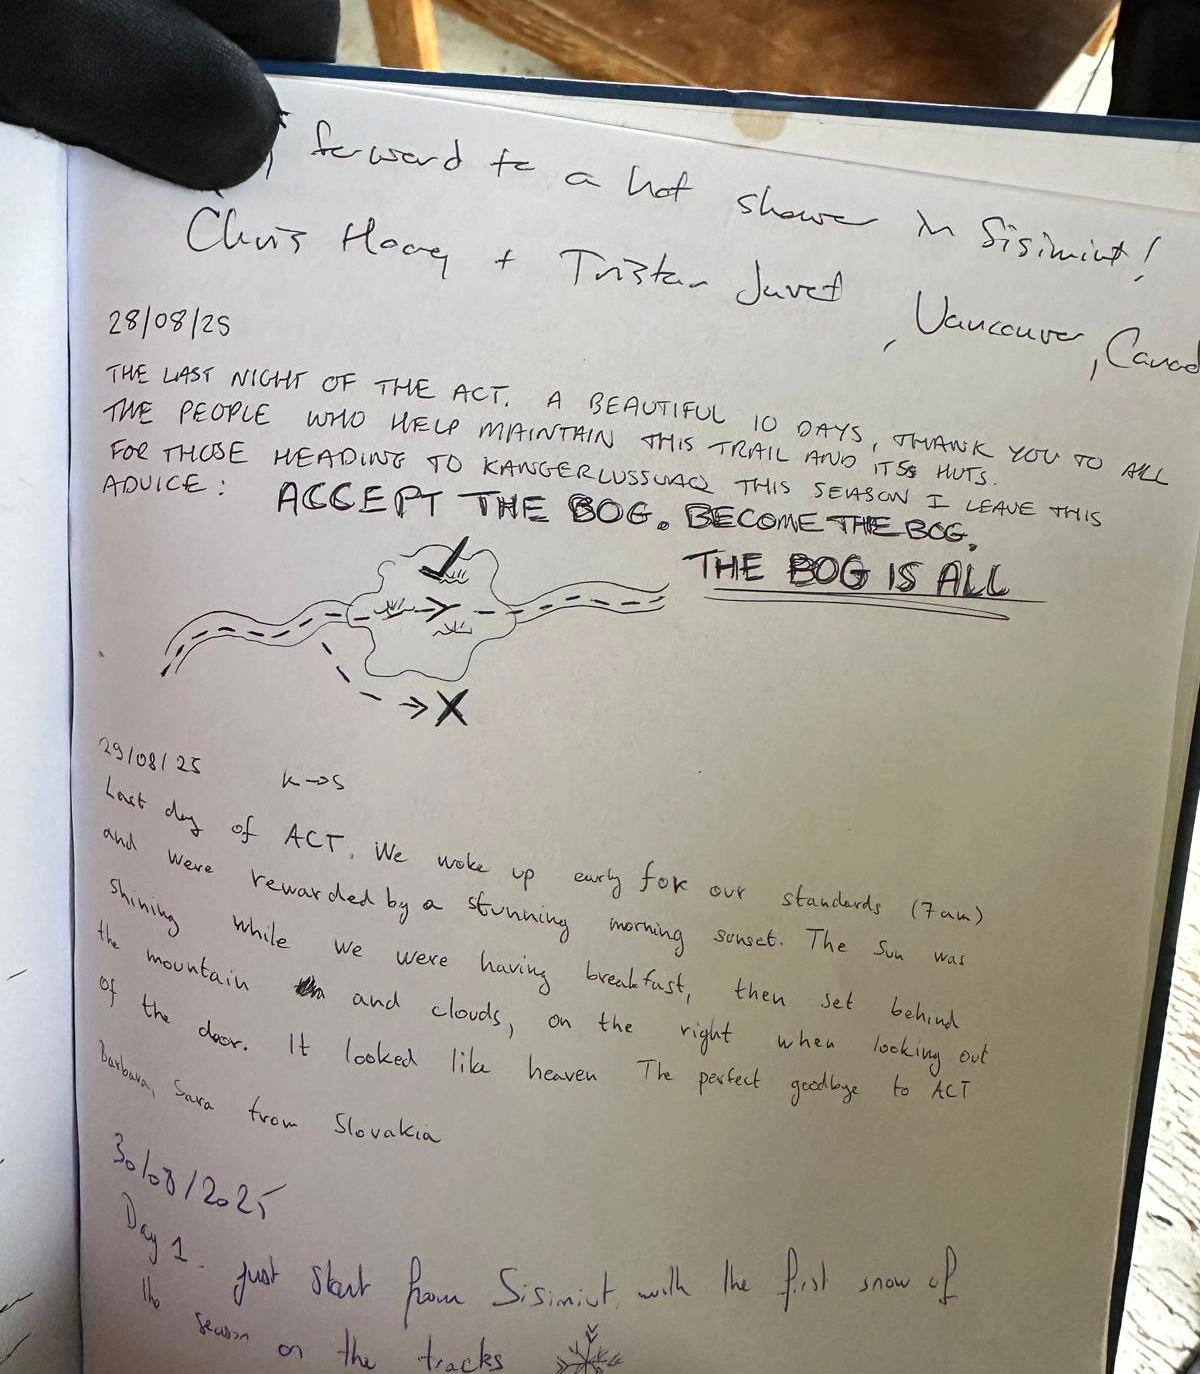 forward to a hot shower in Sisimiut!
Chris Hoag + Tristan Juvet, Vancouver, Canad
28/08/25
THE LAST NIGHT OF THE ACT. A BEAUTIFUL 10 DAYS, THANK YOU TO ALL
THE PEOPLE WHO HELP MAINTAIN THIS TRAIL AND ITS HUTS.
FOR THOSE HEADING TO KANGERLUSSUAQ THIS SEASON I LEAVE THIS
ADVICE: ACCEPT THE BOG. BECOME THE BOG.
THE BOG IS ALL
29/08/25 K→S
Last day of ACT. We woke up early for our standards (7am)
and were rewarded by a stunning morning sunset. The sun was
shining while we were having breakfast, then set behind
the mountain and clouds, on the right when looking out
of the door. It looked like heaven The perfect goodbye to ACT
Barbara, Sara from Slovakia
30/08/2025
Day 1. Just start from Sisimiut with the first snow of
the season on the tracks